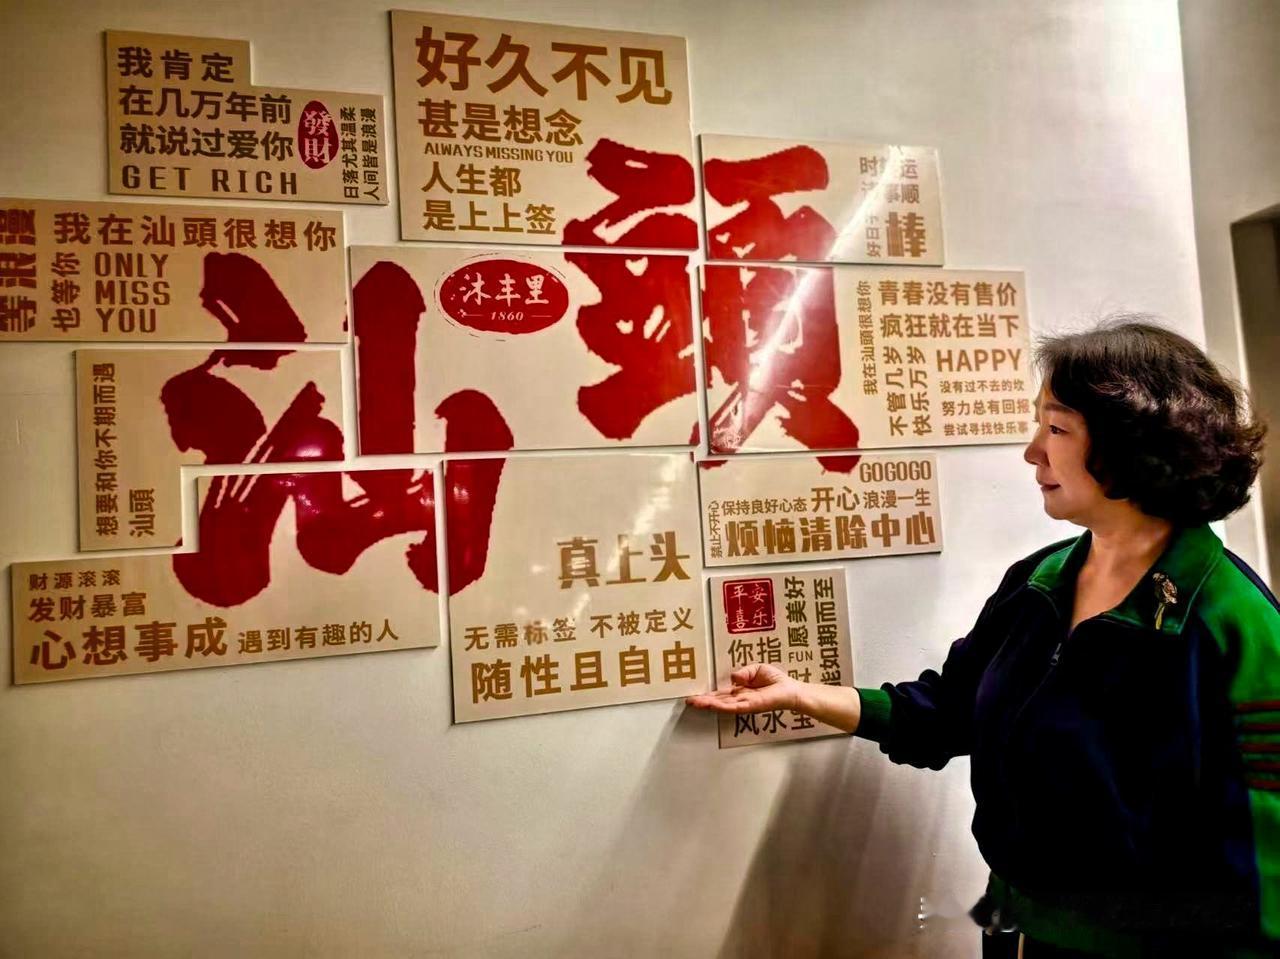 我肯定
在几万年前
就说过爱你
GET RICH
發財
日落尤其温柔
人间皆是浪漫
好久不见
甚是想念
ALWAYS MISSING YOU
人生都
是上上签
好日子
棒
我在汕頭很想你
等浪漫
也等你
ONLY
MISS
YOU
汕頭
沐丰里
1860
我在汕頭很想你
青春没有售价
疯狂就在当下
不管几岁
快乐万岁
HAPPY
没有过不去的坎
努力总有回报
尝试寻找快乐事
想要和你不期而遇
汕頭
GOGOGO
禁止不开心
保持良好心态 开心 浪漫一生
烦恼清除中心
财源滚滚
发财暴富
心想事成 遇到有趣的人
真上头
无需标签 不被定义
随性且自由
平安
喜乐
愿美好
如期而至
FUN